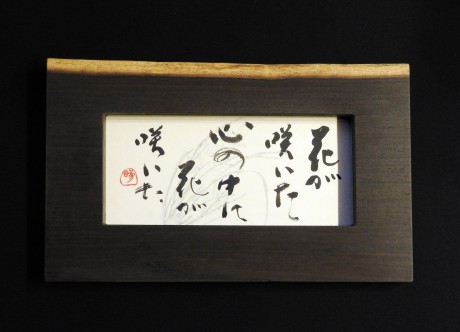 花が
咲いた
心の中に
花が
咲いた